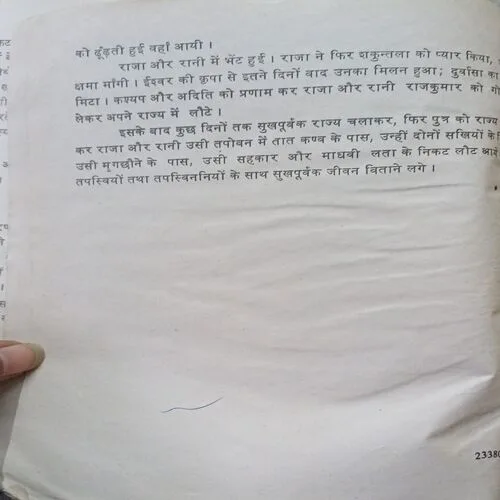 को ढूँढ़ती हुई वहाँ आयी ।
राजा और रानी में भेंट हुई । राजा ने फिर शकुन्तला को प्यार किया,
क्षमा माँगी । ईश्वर की कृपा से इतने दिनों बाद उनका मिलन हुआ; दुर्वासा का
मिटा । कश्यप और अदिति को प्रणाम कर राजा और रानी राजकुमार को गो
लेकर अपने राज्य में लौटे ।
इसके बाद कुछ दिनों तक सुखपूर्वक राज्य चलाकर, फिर पुत्र को राज्य
कर राजा और रानी उसी तपोवन में तात कण्व के पास, उन्हीं दोनों सखियों के
उसी मृगछौने के पास, उसी सहकार और माधवी लता के निकट लौट आये
तपस्वियों तथा तपस्विननियों के साथ सुखपूर्वक जीवन बिताने लगे ।
2338